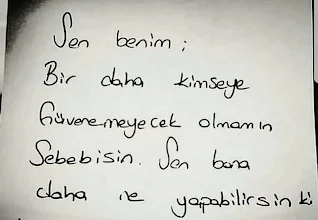 Sen benim ;
Bir daha kimseye
Güvenemeyecek olmamın
Sebebisin. Sen bana
daha ne yapabilirsin ki